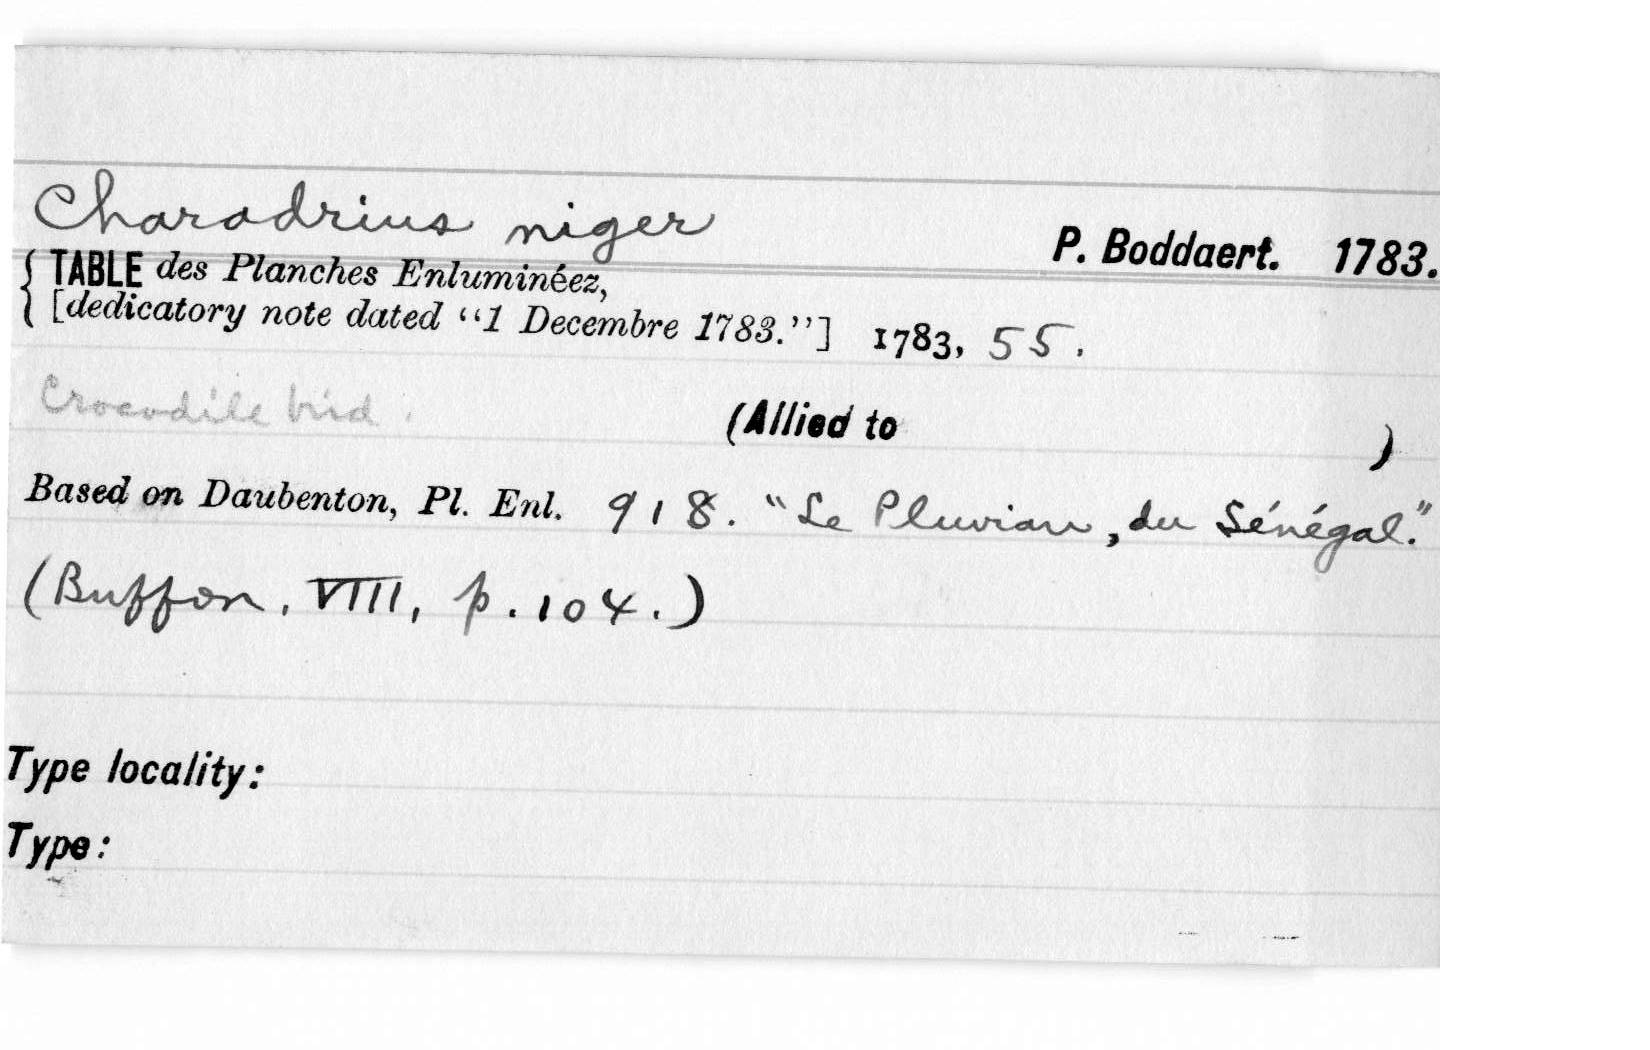 Charadrius niger
P. Boddaert. 1783.
{ TABLE des Planches Enluminéez,
[dedicatory note dated "1 Decembre 1783."] 1783, 55.
Crocodile bird.
(Allied to )
Based on Daubenton, Pl. Enl. 918. "Le Pluvian, du Sénégal."
(Buffon, VIII, p. 104.)
Type locality:
Type: